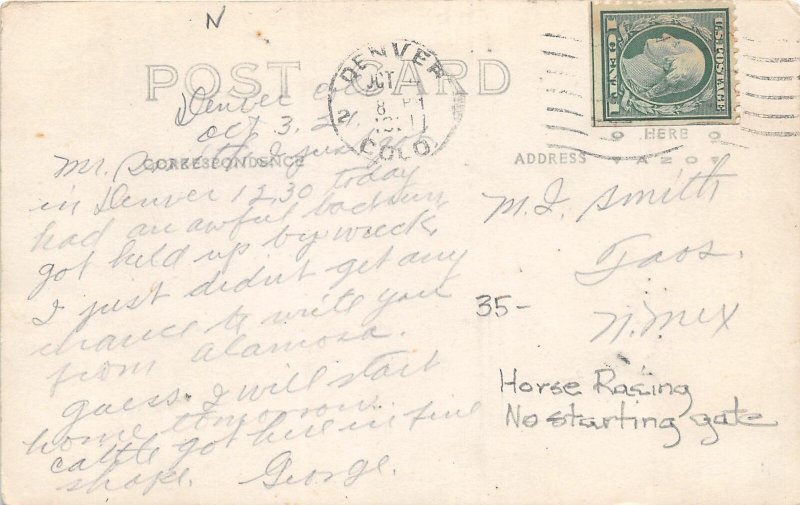 N
POST CARD
DENVER
OCT
8 PM
COLO
U.S. POSTAGE
1 CENT 1
HERE
Denver Colo
Oct 3, 21
CORRESPONDENCE
ADDRESS
Mr. Smith I just got
in Denver 12.30 today
had an awful bad run
got held up by wreck
I just didnt get any
chance to write you
from Alamosa.
guess I will start
home tomorrow
cattle got here in fine
shape. George.
M. I. Smith
Taos.
N. Mex
35-
Horse Racing
No starting gate